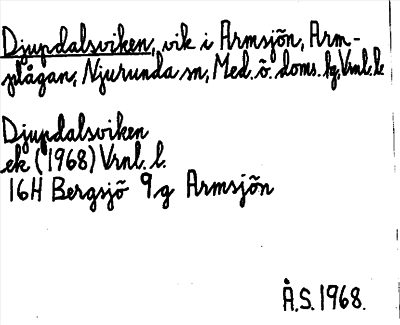 Djupdalsviken, vik i Armsjön, Arm-
plågan, Njurunda sn, Med. ö. doms. lg, Vrnl. l.
Djupdalsviken
ek (1968) Vrnl. l.
16H Bergsjö 9g Armsjön
Å.S. 1968.